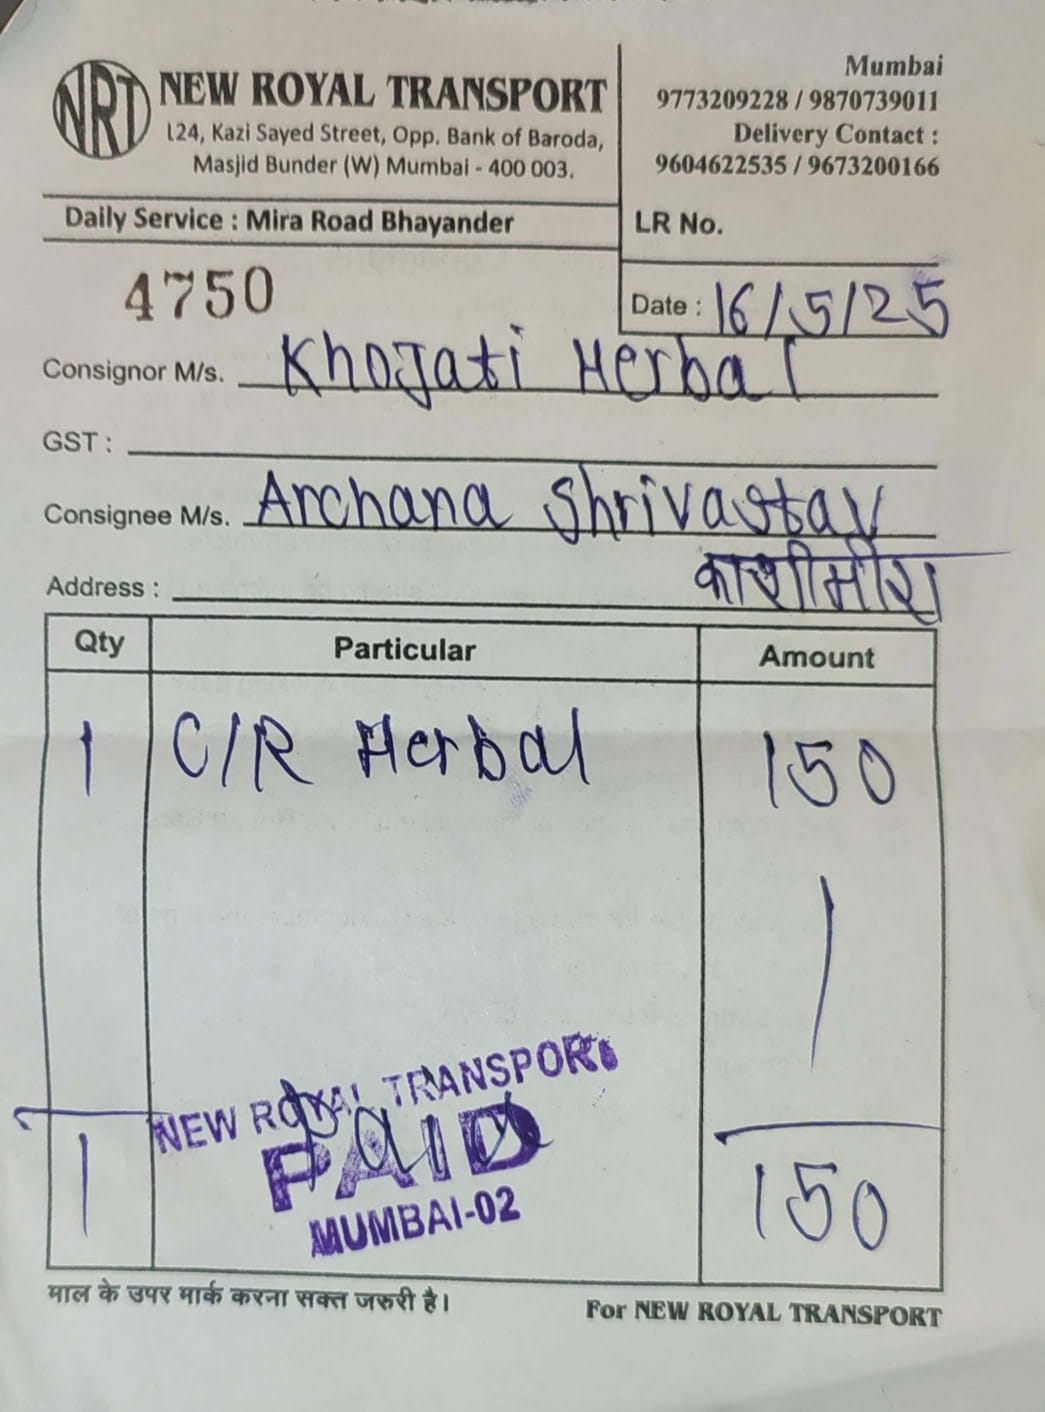 NRT NEW ROYAL TRANSPORT
124, Kazi Sayed Street, Opp. Bank of Baroda,
Masjid Bunder (W) Mumbai - 400 003.
Mumbai
9773209228 / 9870739011
Delivery Contact :
9604622535 / 9673200166
Daily Service : Mira Road Bhayander
LR No.
4750
Date : 16/5/25
Consignor M/s. Khojati Herbal
GST :
Consignee M/s. Archana Shrivastav
Address : काशीमीरा
Qty Particular Amount
1 C/R Herbal 150
NEW ROYAL TRANSPORT
Paid
PAID
MUMBAI-02
1 150
माल के उपर मार्क करना सक्त जरुरी है।
For NEW ROYAL TRANSPORT